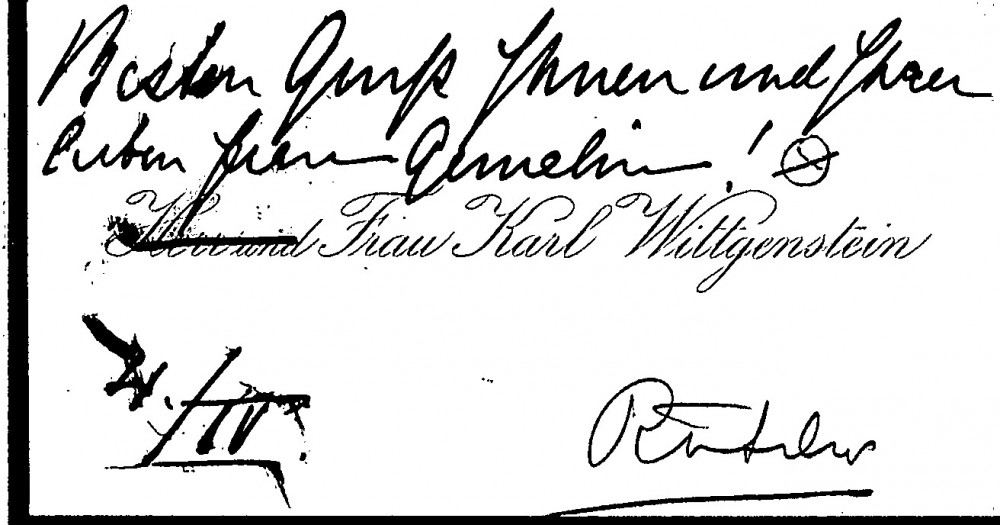 Besten Gruß Ihnen und Ihrer
lieben Frau Gemalin!
Herr und Frau Karl Wittgenstein